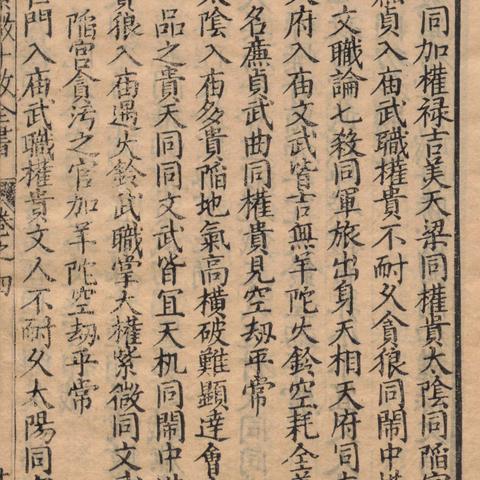 同加權祿吉美天梁同權貴太陰同陷宮
貞入庙武職權貴不耐久貪狼同閙中
文職論七殺同軍旅出身天相天府同
府入庙文武皆吉無羊陀火鈴空耗全美
名蕪貞武曲同權貴見空劫平常
太陰入庙多貴陷地氣高橫破難顯達會
品之貴天同同文武皆宜天机同閙中
狼入庙遇火鈴武職掌大權紫微同文
陷宮貪污之官加羊陀空劫平常
門入庙武職權貴文人不耐久太陽同
全書 卷之四